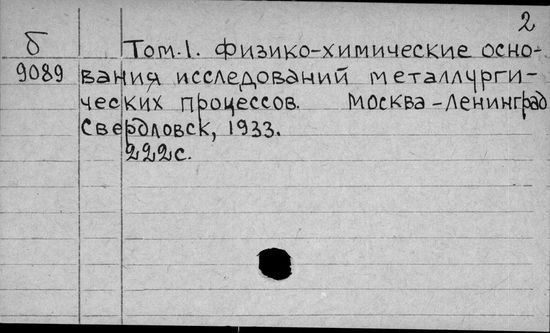 2
б
9089
Том.1. Физико-химические осно-
вания исследований металлурги-
ческих процессов. Москва-Ленинград
Свердловск, 1933.
222с.